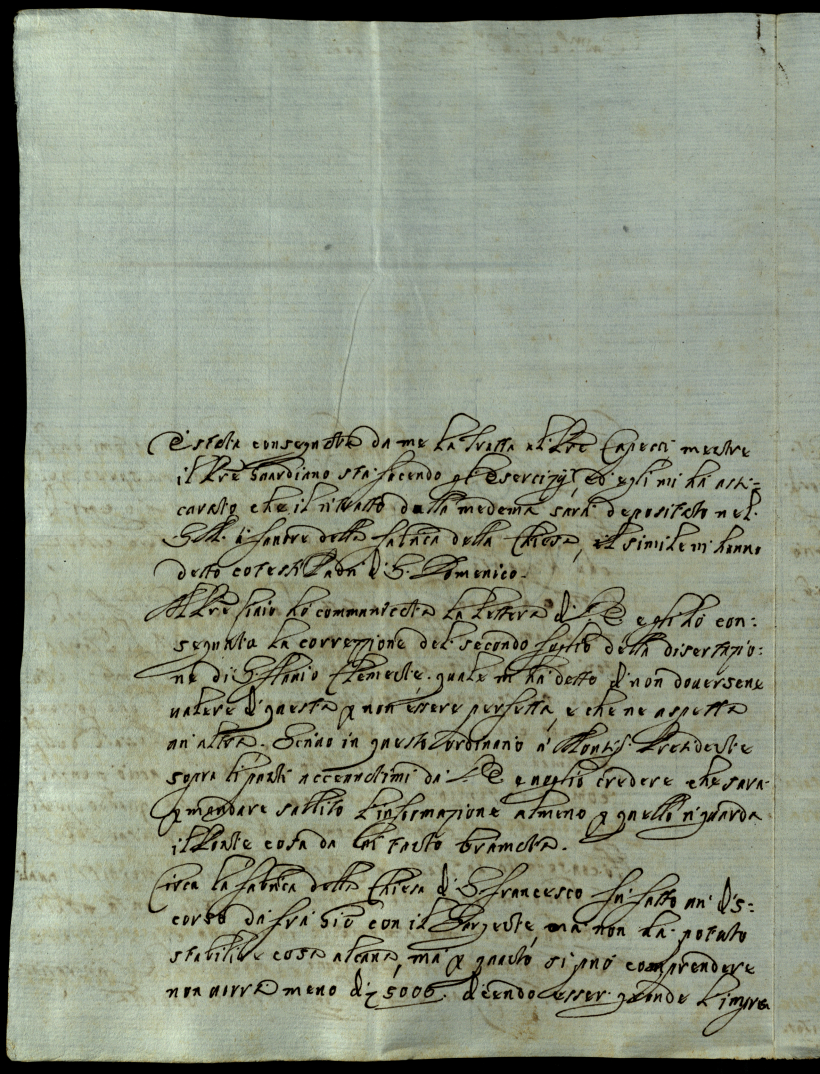 È stata consegnata da me la tratta al Pre Capecci mentre
il Pre Guardiano sta facendo gl'Esercizij, ed egli mi ha assi=
curato che il ritratto della medema sarà depositato nel
S. M. à favore della fabrica della Chiesa, el simile mi hanno
detto cotesti Padri di S. Domenico.
Al Pre hò communicata la lettera di e gli hò con:
segnata la correzione del secondo foglio della disertazio:
ne di S. Flavio Clemente. quale mi ha detto di non doversene
valere di questa p non essere perfetta, e che ne aspetta
un altra. Scrivo in questo ordinario à Monsig. Presidente
sopra li punti accennatimi da e voglio credere che sarà
p mandare subbito l'informazione almeno p quello riguarda
il Ponte cosa da lui tanto bramata.
Circa la fabrica della Chiesa di S. Francesco fù fatto un dis=
corso da frà Giò con il Sargente, mà non hà potuto
stabilire cosa alcuna, mà p quanto si può comprendere
non vorrà meno di 5000. dicendo esser grande l'impre